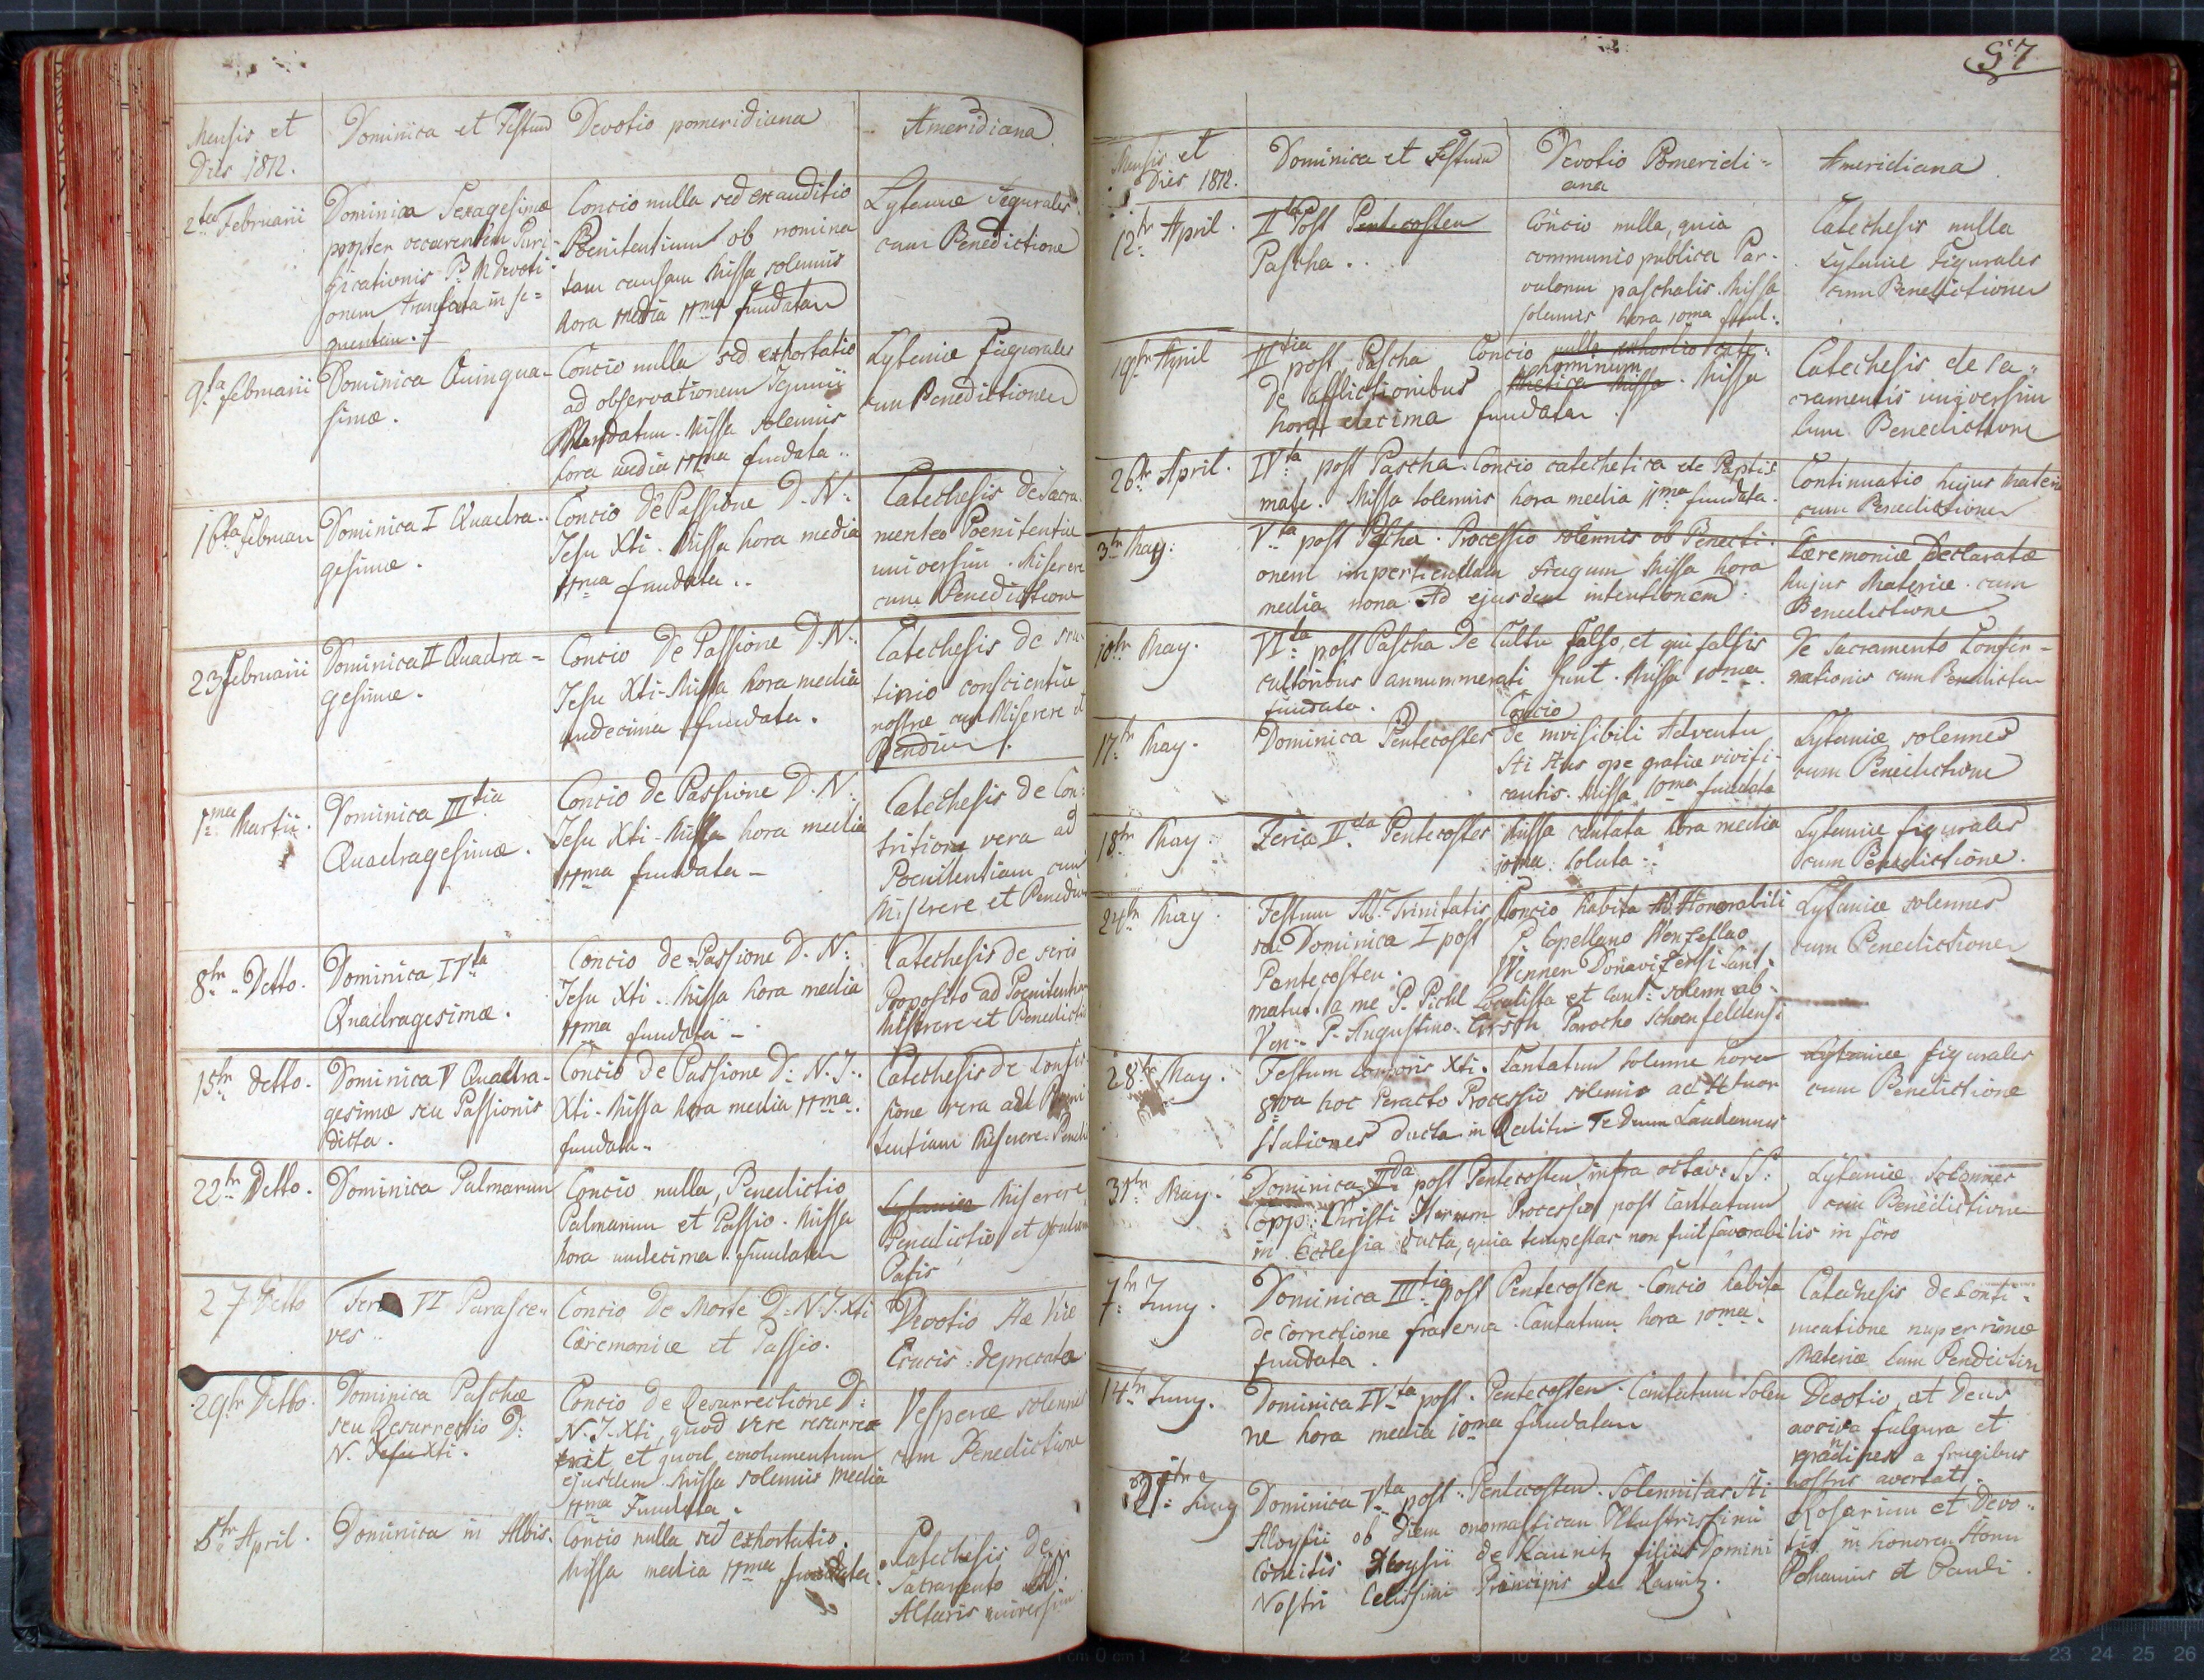 Mensis et
Dies 1812.
Dominica et Festum
Devotio pomeridiana
Ameridiana
2ta Februarii
Dominica Sexagesimæ
propter occurentem Puri-
ficationis B. M devoti-
onem translata in se=
quentem.
Concio nulla sed exauditio
Poenitentium ob nomina
tam causam Missa solemnis
hora media 11ma fundata
Lytaniæ Figurales
cum Benedictione
9ta februarii
Dominica Quinqua-
simæ.
Concio nulla sed exhortatio
ad observationem Jejunii
Mandatum. Missa solemnis
hora media 11ma fundata..
Lytaniæ figurales
cum Benedictione
16ta Februar
Dominica I Quadra..
gesimæ.
Concio de Passione D. N:
Jesu Xti. Missa hora media
11ma fundata..
Catechesis de Sacra
mento Poenitentiæ
universim. Miserere
cum Benedictione
23 Februarii
Dominica II Quadra-
gesimæ.
Concio De Passione D. N.
Jesu Xti. Missa hora media
undecima fundata.
Catechesis de scru-
tinio conscientiæ
nostræ cum Miserere et
1ma Martii.
Dominica IIItia
Quadragesimæ.
Concio de Passione D. N.
Jesu Xti. Missa hora media
11ma fundata -
Catechesis de Con:
tritione vera ad
Poenitentiam cum
Miserere et
8tr Detto.
Dominica IVta
Quadragesimæ.
Concio de Passione D. N:
Jesu Xti.. Missa hora media
11ma fundata -
Catechesis de serio
Proposito ad Poenitentiam
Miserere et Benedictio
15tr detto.
Dominica V Quadra-
gesimæ seu Passionis
dicta.
Concio de Passione D: N. J:.
Xti. Missa hora media 11ma.
fundata..
Catechesis de Confes
sione vera ad Poeni
tentiam Miserere. Bened
22tr Detto.
Dominica Palmarum
Concio nulla, Benedictio
Palmarum et Passio. Missa
hora undecima fundata
Lytaniæ Miserere
Benedictio et
27 Detto
Feria VI Parasce..
ves..
Concio De Morte D: N. J. Xti
Cæremoniæ et Passio.
Devotio Viæ
Crucis: deprecata
29tr Detto.
Dominica Paschæ
seu Resurrectio D:
N. Jesu Xti.
Concio de Resurrectione D:
N. J. Xti, quod vere resurrex
erit et quod emolumentum
ejusdem Missa solemnis media
11ma Fundata.
Vesperæ solennes
cum Benedictione
5tr April.
Dominica in Albis.
Concio nulla sed exhortatio.
Missa media 11ma fundata.
Catechesis de
Sacramento
Altaris universim
57
Mensis et
Dies 1812.
Dominica et Festum
Devotio Pomeridi=
ana
Ameridiana.
12tr April.
II Post Pentecosten
Pascha.
Concio nulla, quia
communio publica Par-
vulorum paschalis. Missa
solemnis hora 10ma fund.
Catechesis nulla
Lytaniæ Figurales
cum Benedictione
19tr April
IIItia post Pascha Concio nulla exhortio cate:
de afflictionibus hominum chetica Missa. Missa
hora decima fundata.
Catechesis de Sa..
cramentis universim
Cum Benedictione
26tr April.
IVta post Pascha. Concio catechetica de Baptis
mate. Missa solemnis hora media 11ma fundata.
Continuatio hujus Materiæ
cum Benedictione
3tr May:
Vta post Pascha. Processio solemnis ob Benedicti-
onem impertiendam Frugum Missa hora
media nona Ad ejusdem intentionem.
Cæremoniæ declaratæ
hujus Materiæ. cum
Benedictione
10tr May.
VIta post Pascha De Cultu falso, et qui falsis
cultoribus annummerati sunt. Missa 10ma.
fundata.
De Sacramento Confir-
mationis cum Benedictio
17tr May.
Dominica Pentecostes
Concio
de invisibili Adventu
Sti Stus ope gratiæ vivifi-
cantis. Missa 10ma fundata
Lytaniæ solennes
cum Benedictione
18tr May.
Feria IIda Pentecostes
Missa cantata hora media
10ma soluta..
Lytaniæ figurales
cum Benedictione.
24tr May.
Festum SS. Trinitatis
seu Dominica I post
Pentecosten.
Concio habita ab Honorabili
P. Capellano Wenzeslao
Wenner Donavizensi Cant-
matut. a me P. Pichl Localista et Cant: solenn ab-
Ven. P. Augustino Parocho Schoenfeldensi
Lytaniæ solennes
cum Benedictione
28tr May.
Festum Corporis Xti. Cantatum solenne hora
8va hoc Peracto Processio solennis ad 4tuor
Stationes ducta in Reditu Te Deum Laudamus
Lytaniæ figurales
cum Benedictione
31tr May.
Dominica IIda post Pentecosten infra octav: SS:
Copp: Christi Iterum Processio post Cantatum
in Ecclesia ducta, quia tempestas non fuit favorabilis in foro
Lytaniæ Solennes
cum Benedictione
7tr Juny.
Dominica IIItia post Pentecosten. Concio habita
de correctione fraterna. Cantatum hora 10ma.
fundata.
Catechesis de Conti-
nuatione nuperrimæ
Materiæ Cum
14tr Juny.
Dominica IVta post. Pentecosten. Cantatum Solen
ne hora media 10ma fundatam
Devotio ut Deus
nociva fulgura et
grandines a frugibus
nostris avertat.
21tr Juny
Dominica Vta post.. Pentecosten. Solennitas Sti
Aloysii ob Diem onomasticam Illustrissimi
Comitis Aloysii de Kaunitz filius Domini
Nostri Celsissimi Principis de Kaunitz.
Rosarium et Devo..
tio in honorem
Johannis et Pauli.